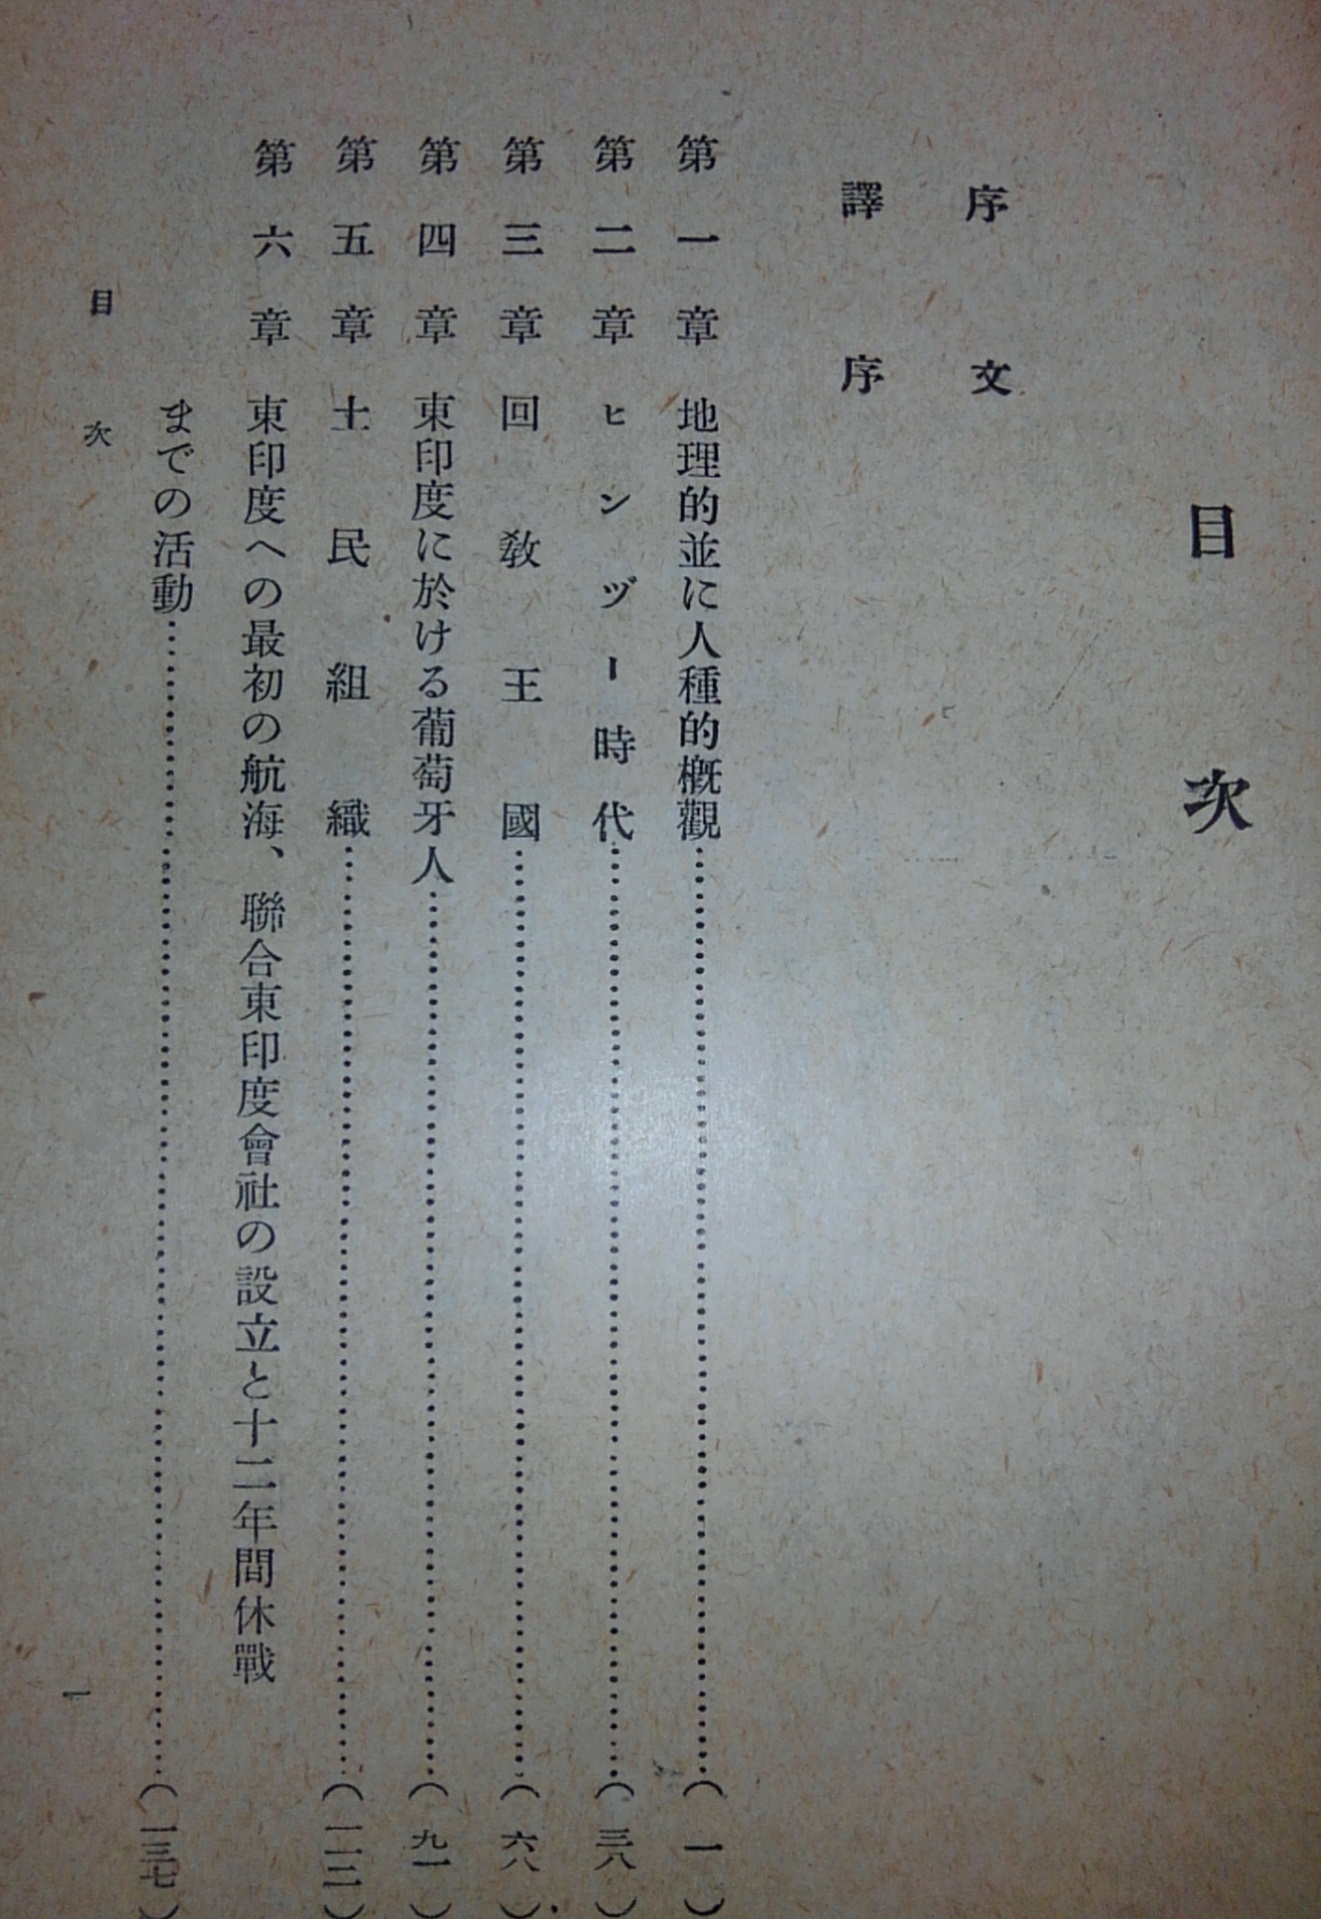 目次
序文
譯序
第一章 地理的並に人種的概觀……(一)
第二章 ヒンヅー時代……(三八)
第三章 回教王國……(六八)
第四章 東印度に於ける葡萄牙人……(九一)
第五章 土民組織……(一二二)
第六章 東印度への最初の航海、聯合東印度會社の設立と十二年間休戰
までの活動……(一三七)
目次
一